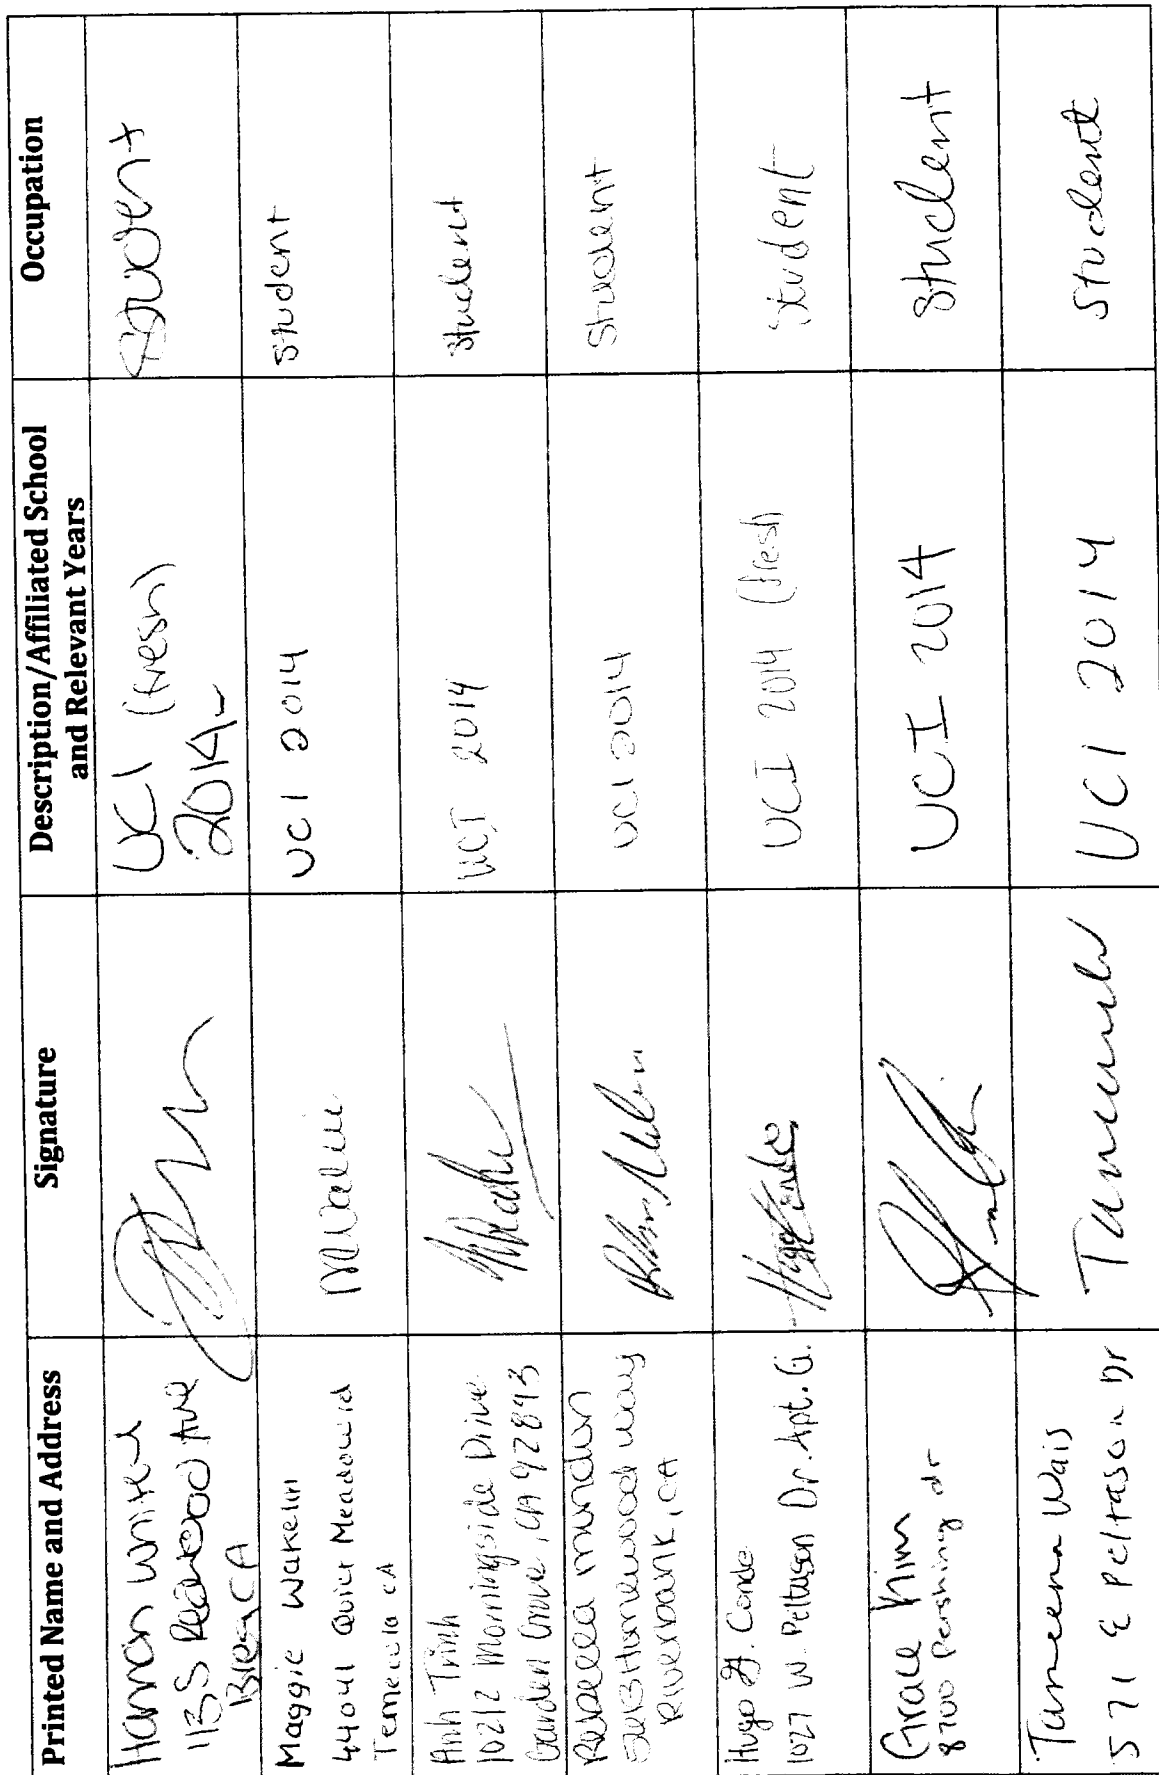 Printed Name and Address
Signature
Description/Affiliated School
and Relevant Years
Occupation
113 S Redwood Ave
Brea, CA
UCI (fresh)
2014-
Student
Maggie Wakelin
44041 Quiet Meadow rd
Temecula CA
UCI 2014
Student
Anh Trinh
10212 Morningside Drive
Garden Grove, CA 92843
UCI 2014
Student
Rebecca
Homewood Way
Riverbank, CA
UCI 2014
Student
Hugo Conde
1027 W. Peltason Dr. Apt. G.
Hugo Conde
UCI 2014 (fresh)
Student
Grace Kim
8700 Pershing dr
UCI 2014
Student
Tameena Wais
571 E Peltason Dr
UCI 2014
Student